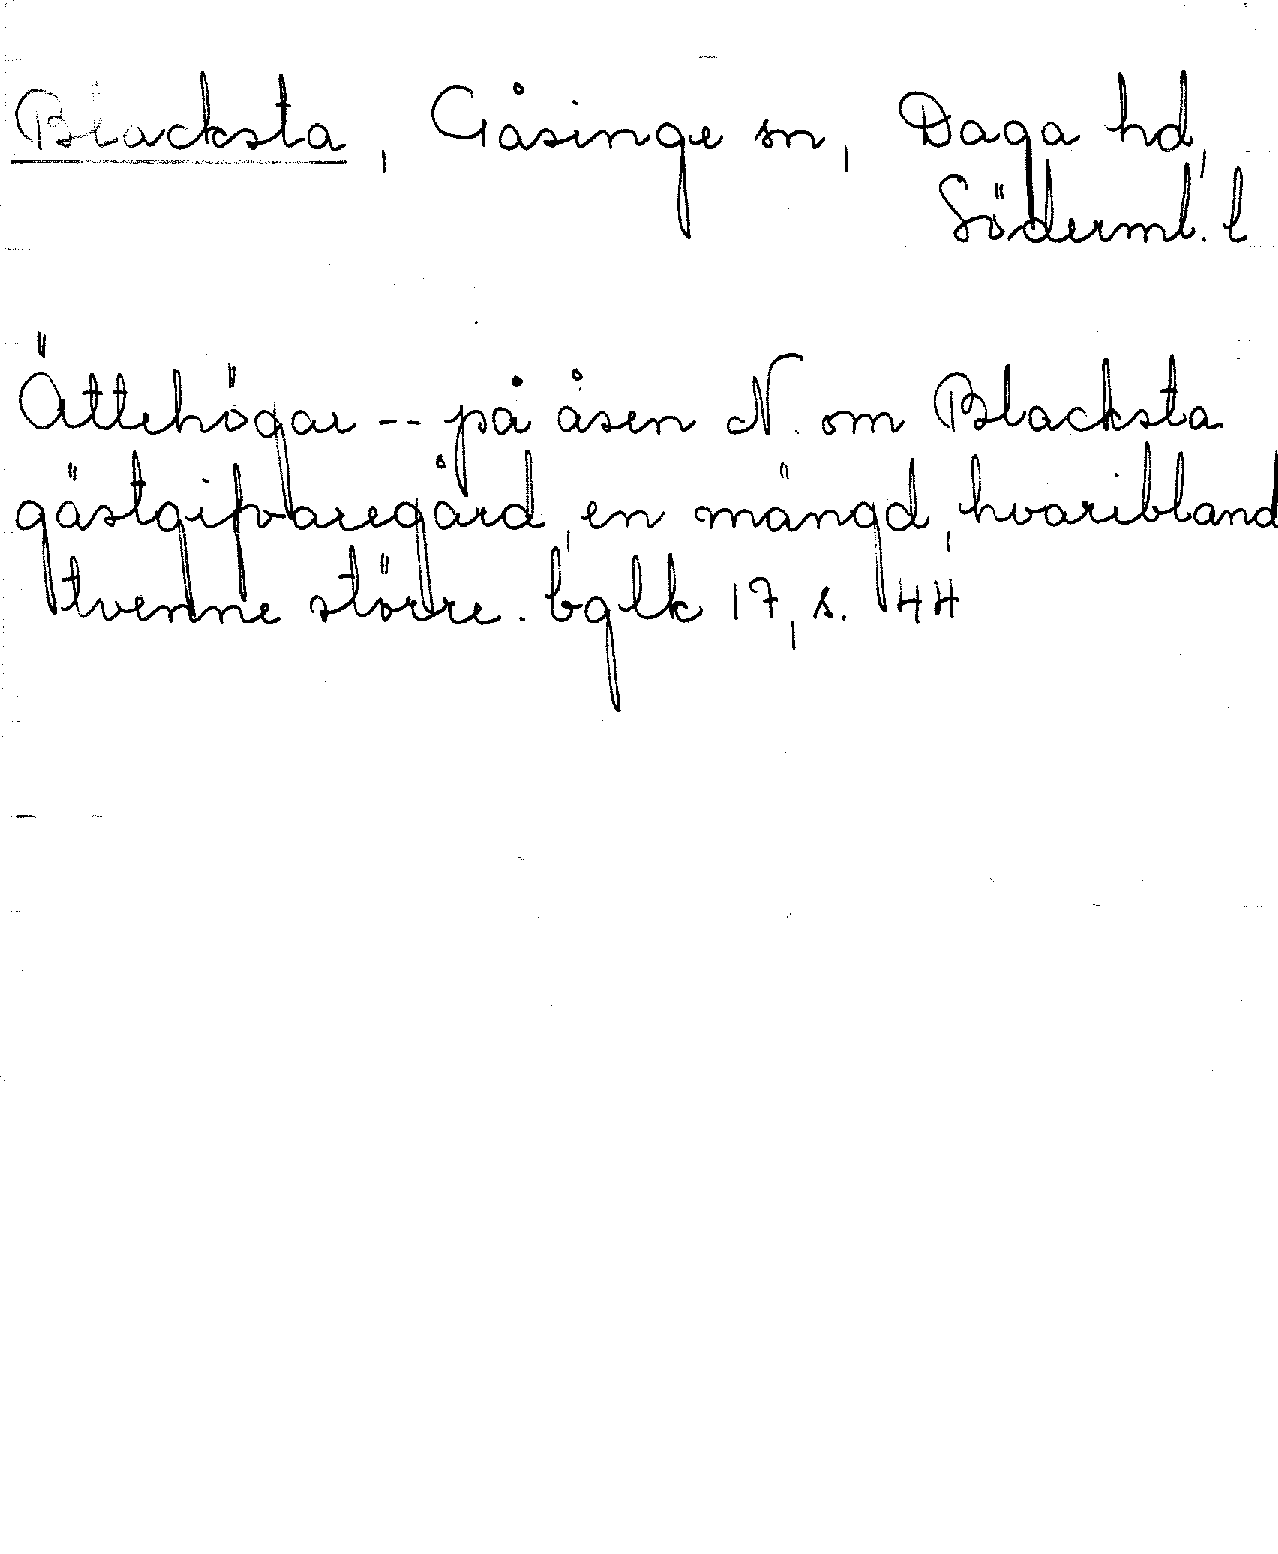 Blacksta, Gåsinge sn, Daga hd,
Söderml. l
Ättehögar -- på åsen N. om Blacksta
gästgifvaregård, en mängd, hvaribland
tvenne större. bglk 17, s. 44